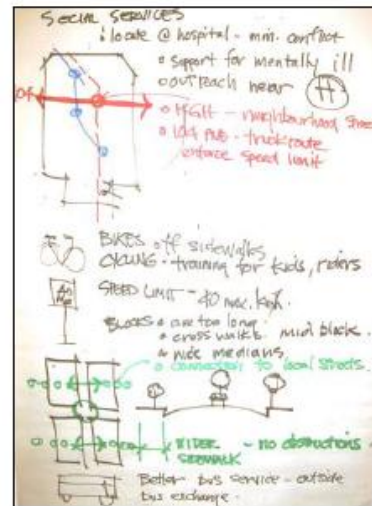 SOCIAL SERVICES
: locate @ hospital - min. conflict
o support for mentally ill
o outreach near H
o HIGH - neighbourhood
o 104 AVE - truck route
enforce speed limit
BIKES off sidewalks
CYCLING - training for kids, riders
SPEED LIMIT - 40 max. kph.
40
BLOCKS o are too long.
o cross walks mid block.
o wide medians
o connection to local streets.
WIDER SIDEWALK - no obstructions
Better bus service - outside
bus exchange.